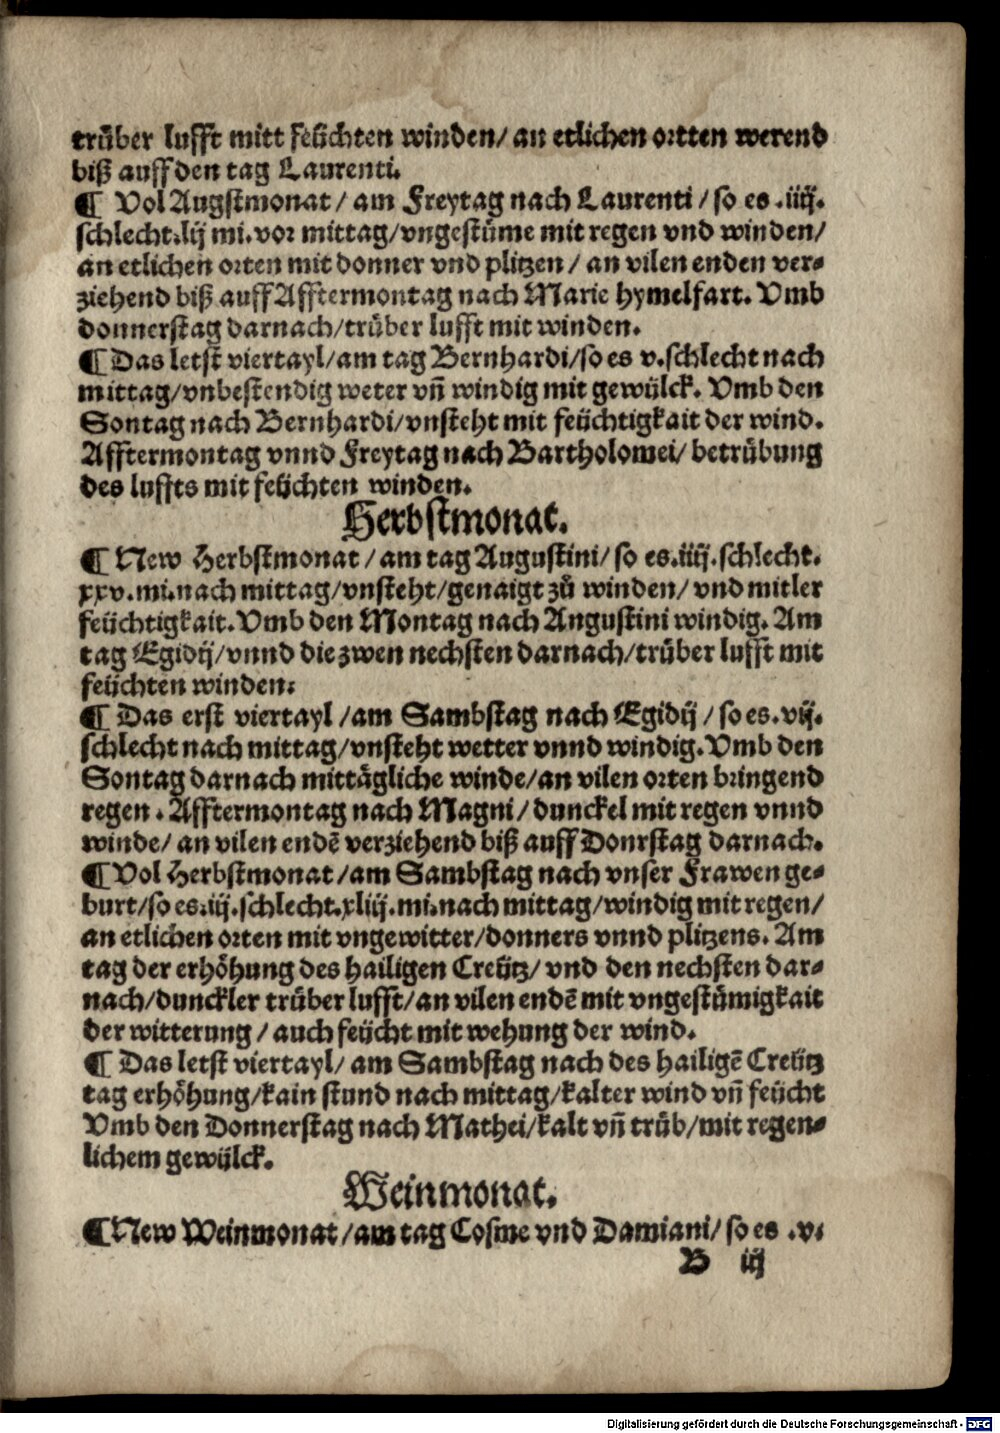 trüber lufft mitt feüchten winden/ an etlichen ortten werend
biß auff den tag Laurenti.
¶ Vol Augstmonat / am Freytag nach Laurenti / so es .iiij.
schlecht.lij mi.vor mittag/vngestüme mit regen vnd winden/
an etlichen orten mit donner vnd plitzen / an vilen enden ver-
ziehend biß auff Afftermontag nach Marie hymelfart. Vmb
donnerstag darnach/trüber lufft mit winden.
¶ Das letst viertayl/am tag Bernhardi/so es v.schlecht nach
mittag/vnbestendig weter vñ windig mit gewülck. Vmb den
Sontag nach Bernhardi/vnsteht mit feüchtigkait der wind.
Afftermontag vnnd Freytag nach Bartholomei/ betrübung
des luffts mit feüchten winden.
Herbstmonat.
¶ New Herbstmonat / am tag Augustini/ so es.iiij.schlecht.
xxv.mi.nach mittag/vnsteht/genaigt zů winden/ vnd mitler
feüchtigkait. Vmb den Montag nach Angustini windig. Am
tag Egidij/vnnd die zwen nechsten darnach/trüber lufft mit
feüchten winden.
¶ Das erst viertayl /am Sambstag nach Egidij / so es.vij.
schlecht nach mittag/vnsteht wetter vnnd windig. Vmb den
Sontag darnach mittägliche winde/an vilen orten bringend
regen . Afftermontag nach Magni / dunckel mit regen vnnd
winde/ an vilen endē verziehend biß auff Donrstag darnach.
¶ Vol Herbstmonat /am Sambstag nach vnser Frawen ge-
burt/so es.iij.schlecht.xliij.mi.nach mittag/windig mit regen/
an etlichen orten mit vngewitter/donners vnnd plitzens. Am
tag der erhöhung des hailigen Creütz/ vnd den nechsten dar-
nach/dunckler trüber lufft/an vilen endē mit vngestümigkait
der witterung / auch feücht mit wehung der wind.
¶ Das letst viertayl/ am Sambstag nach des hailigē Creütz
tag erhöhung/kain stund nach mittag/kalter wind vñ feücht
Vmb den Donnerstag nach Mathei/kalt vñ trüb/mit regen-
lichem gewülck.
Weinmonat.
¶ New Weinmonat /am tag Cosme vnd Damiani/ so es .v.
B iij
Digitalisierung gefördert durch die Deutsche Forschungsgemeinschaft - DFG